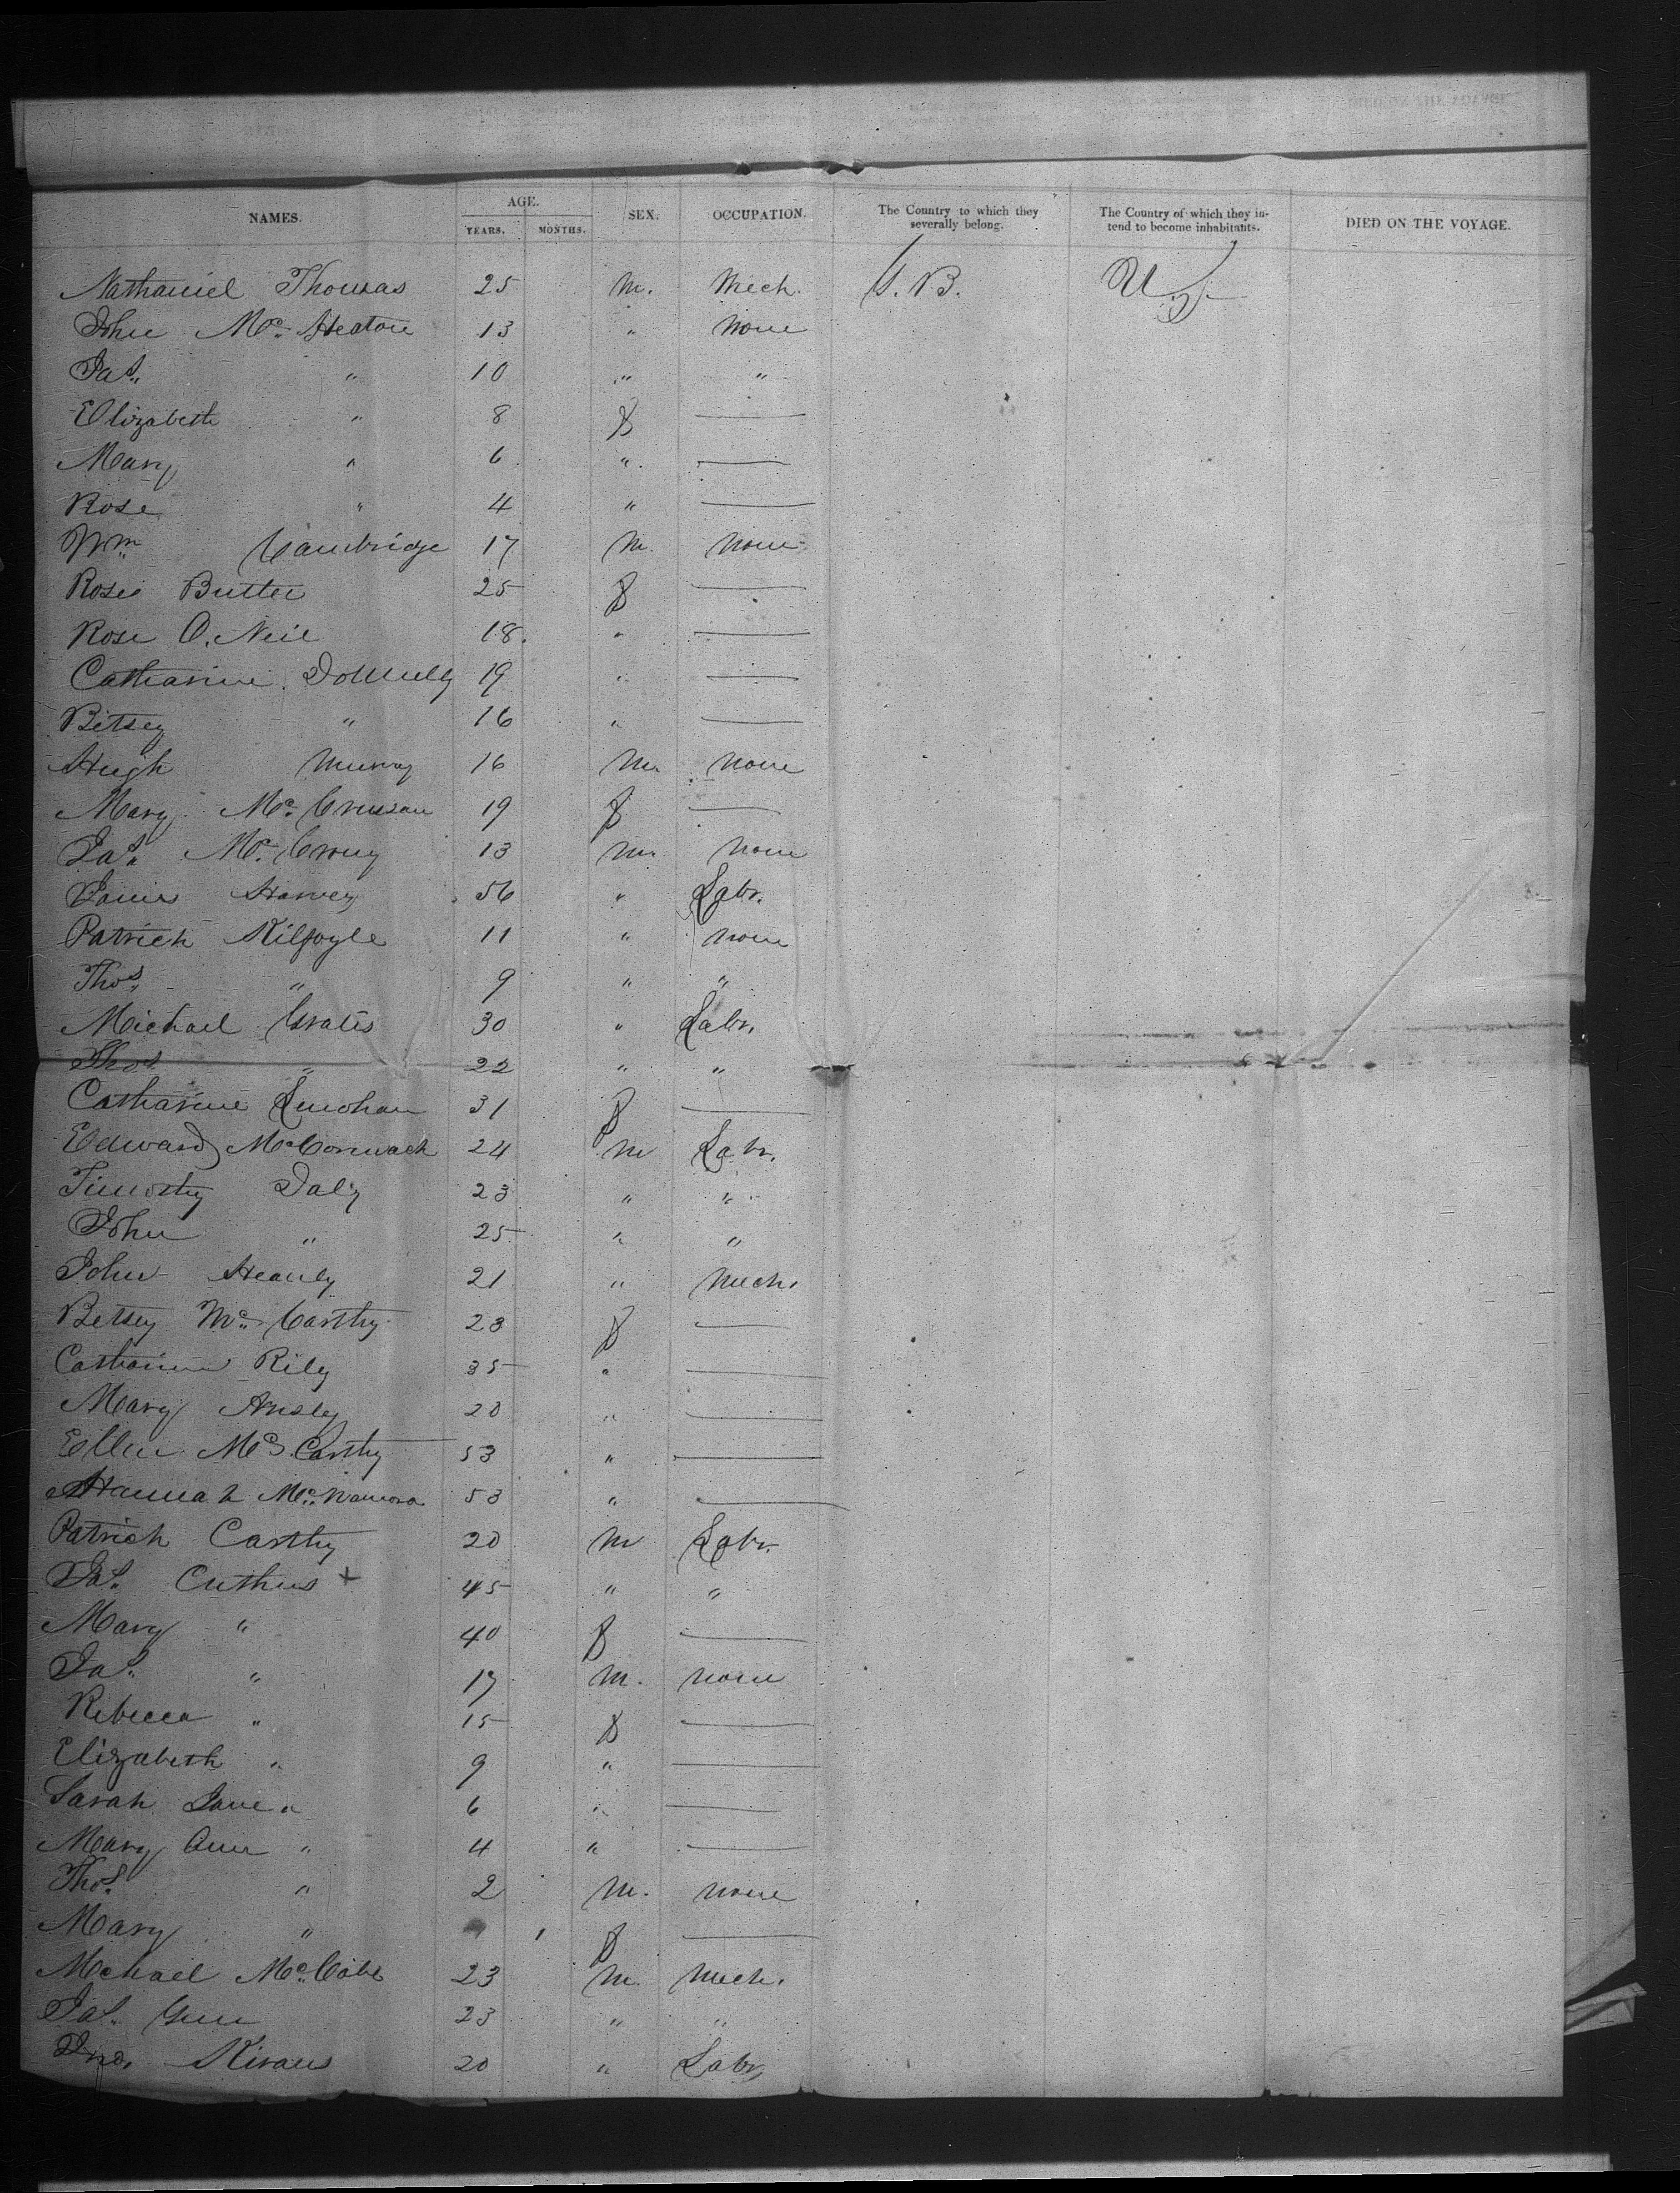 NAMES. AGE. YEARS. MONTHS. SEX. OCCUPATION. The Country to which they severally belong. The Country of which they intend to become inhabitants. DIED ON THE VOYAGE.
Nathaniel Thomas 25 M. Mech. G.B. U.S.
John Mc Heaton 13 " None
Jas. " 10 " "
Elizabeth " 8 f —
Mary " 6 " —
Rose " 4 " —
Wm Cambridge 17 M. None
Rose Butler 25 f —
Rose O. Neil 18. " —
Catharine Donnelly 19 " —
Betsey " 16 " —
Hugh Murray 16 M. None
Mary Mc 19 f —
Jas. Mc 13 M. None
James Harvey 56 " Labr.
Patrick Kilfoyle 11 " None
Thos. " 9 " "
Michael 30 " Labr.
Thos. " 22 " "
Catharine Lenohan 31 f —
Edward McCormack 24 M Labr.
Timothy Daly 23 " "
John " 25 " "
John Heanly 21 " Mech.
Betsey Mc Carthy 23 f —
Catharine Rily 35 " —
Mary Ansley 20 " —
Ellen Mc Carthy 53 " —
Hannah McNamara 53 " —
Patrick Carthy 20 M Labr.
Jas. Cuthus + 45 " "
Mary " 40 f —
Jas. " 17 M. None
Rebecca " 15 f —
Elizabeth " 9 " —
Sarah Jane " 6 " —
Mary Ann " 4 " —
Thos. " 2 M. None
Mary " 1 f —
Michael McCabe 23 M. Mech.
Jas. Gun 23 " "
Jno. Kivans 20 " Labr.